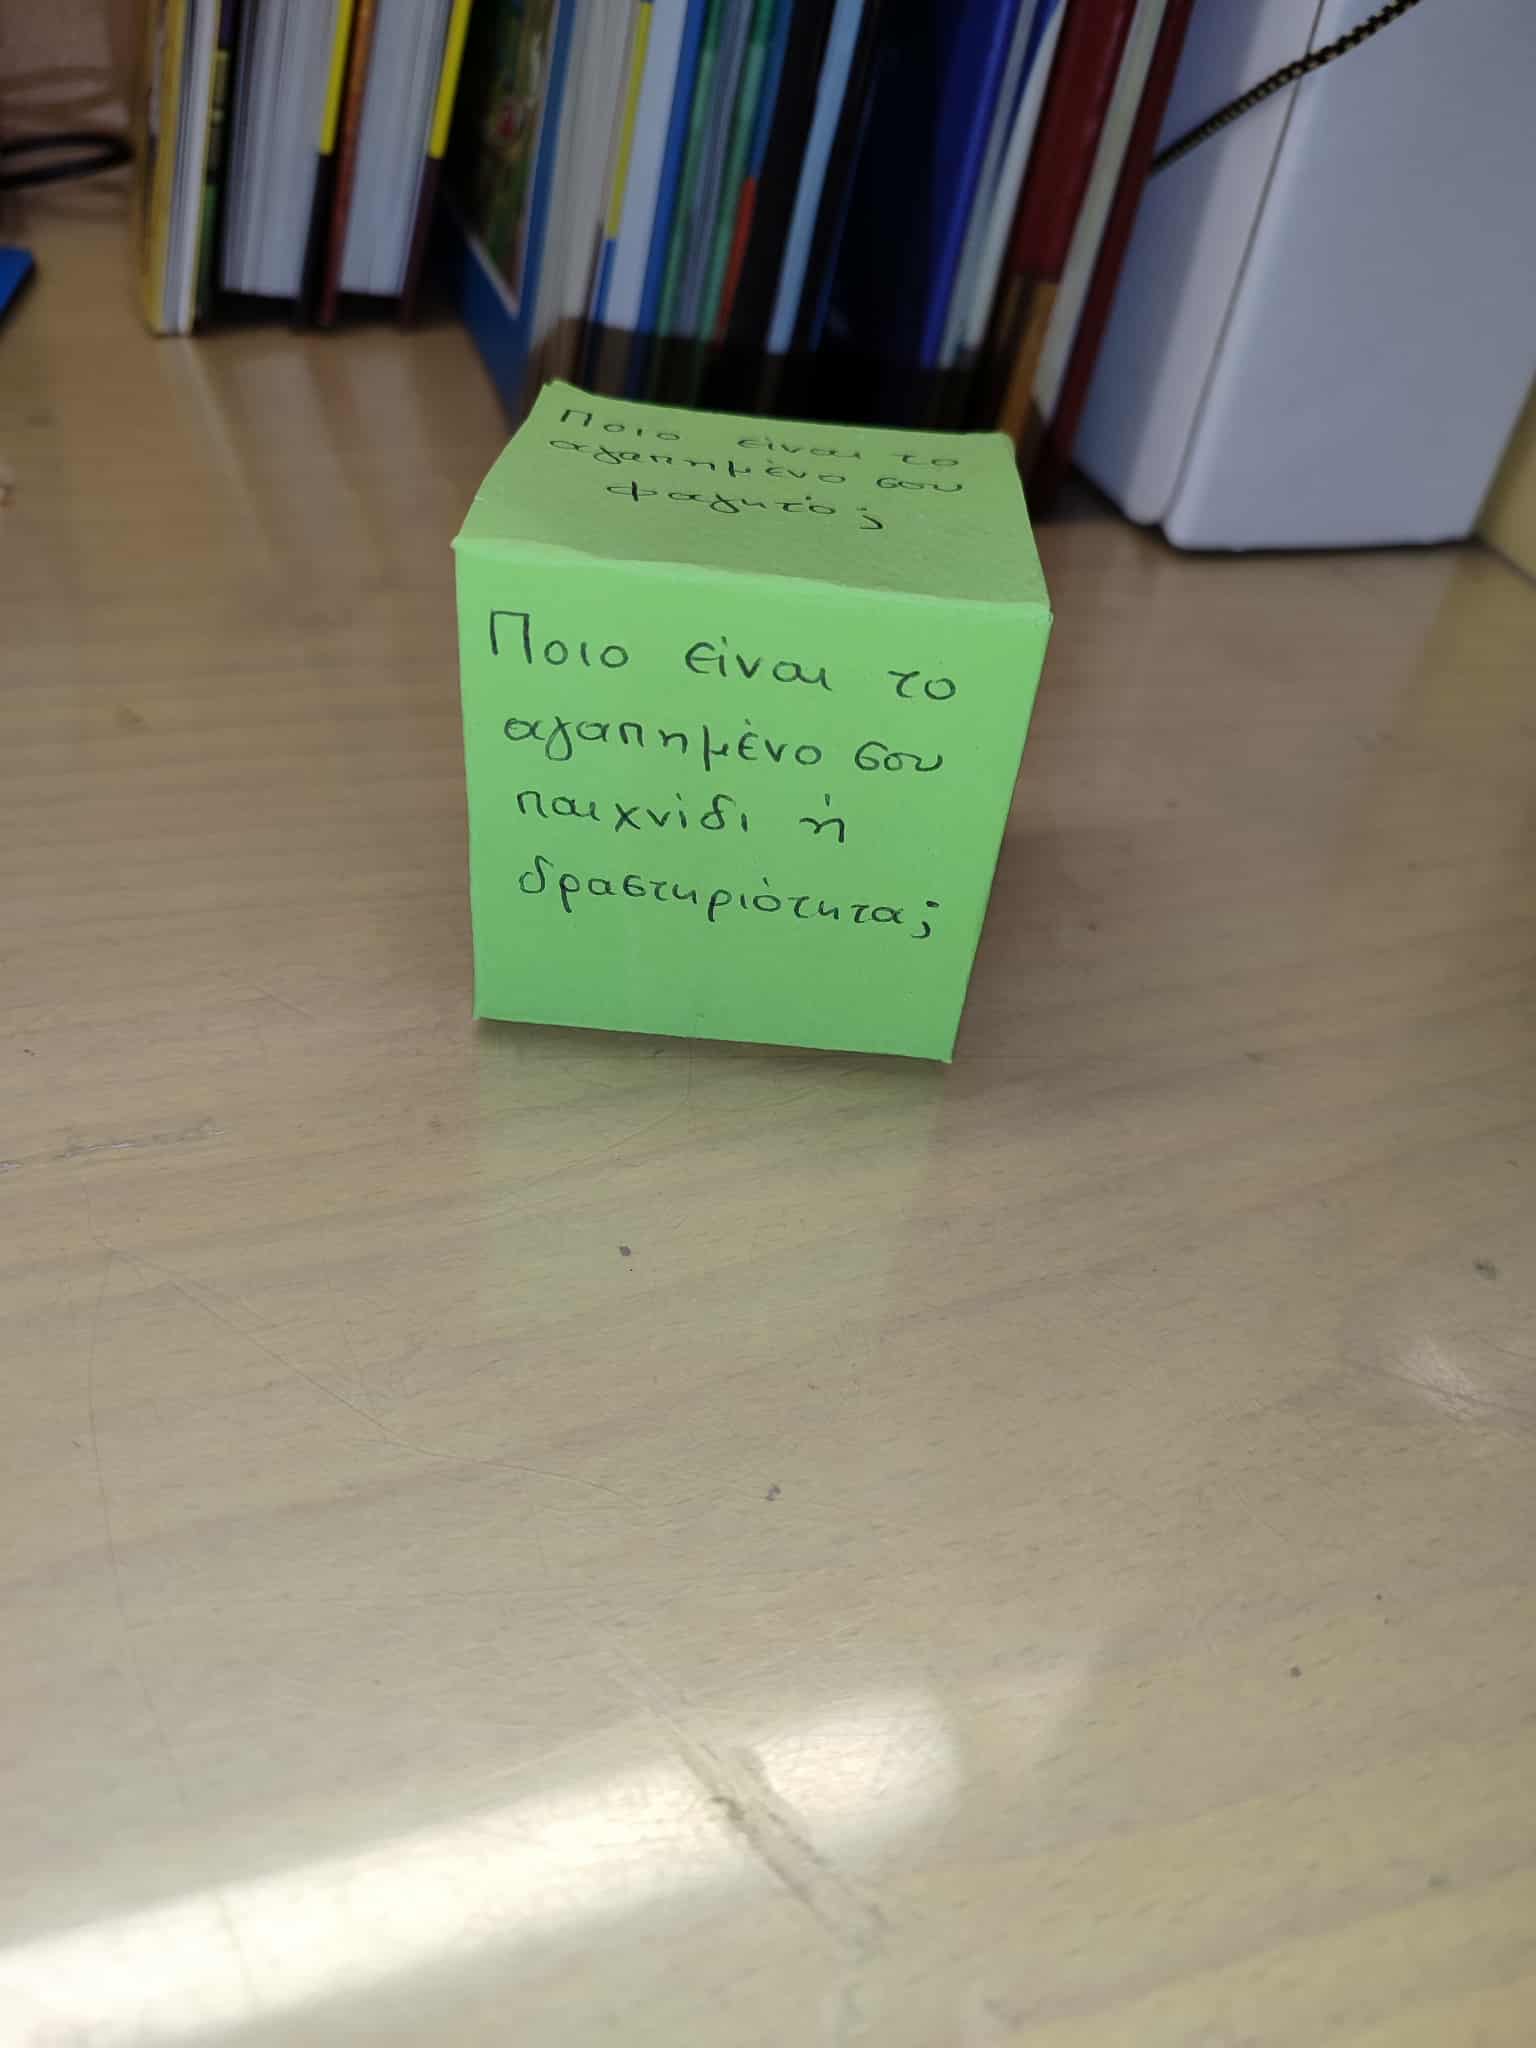 Ποιο είναι το
αγαπημένο σου
φαγητό;
Ποιο είναι το
αγαπημένο σου
παιχνίδι ή
δραστηριότητα;